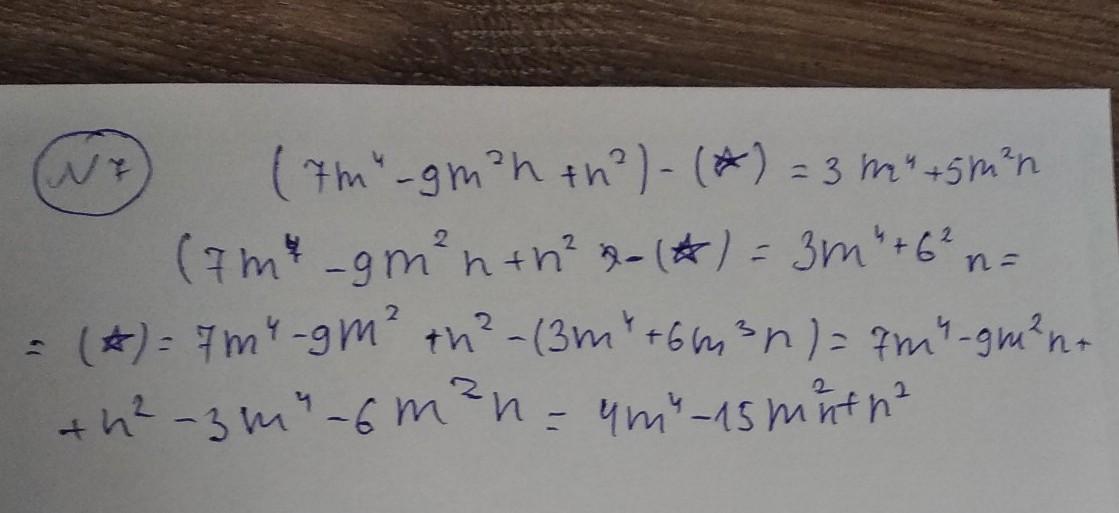 N7 (7m⁴-9m²n+n²)-(☆)=3m⁴+5m²n
(7m⁴-9m²n+n²)-(☆)=3m⁴+6²n=
=(☆)=7m⁴-9m²+n²-(3m⁴+6m³n)=7m⁴-9m²n+
+n²-3m⁴-6m²n=4m⁴-15m²n+n²